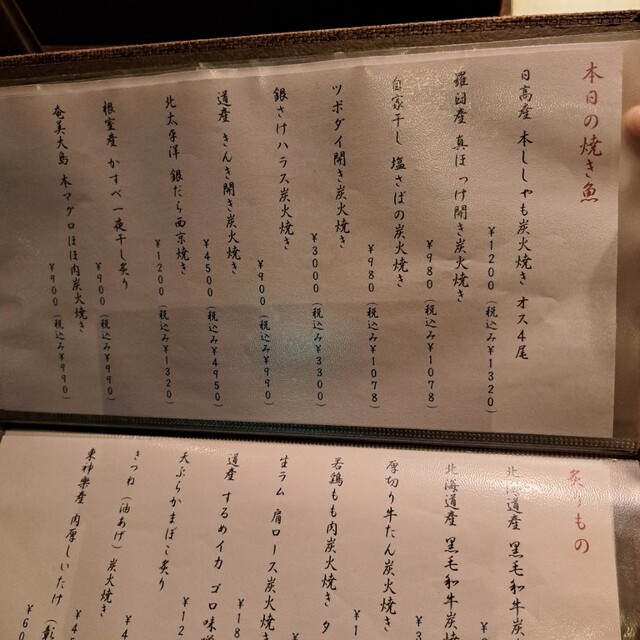 本日の焼き魚
日高産 本ししゃも炭火焼き オス4尾
¥1200(税込み¥1320)
羅臼産 真ほっけ開き炭火焼き
¥980(税込み¥1078)
自家干し 塩さばの炭火焼き
¥980(税込み¥1078)
ツボダイ開き炭火焼き
¥3000(税込み¥3300)
銀さけハラス炭火焼き
¥900(税込み¥990)
道産 きんき開き炭火焼き
¥4500(税込み¥4950)
北太平洋 銀だら西京焼き
¥1200(税込み¥1320)
根室産 かすべ一夜干し炙り
¥900(税込み¥990)
奄美大島 本マグロほほ肉炭火焼き
¥900(税込み¥990)
炙りもの
北海道産 黒毛和牛炭
北海道産 黒毛和牛炭焼
¥3
厚切り牛たん炭火焼
¥1
若鶏もも肉炭火焼き タ
生ラム 肩ロース炭火焼
道産 するめイカ ゴロ味噌
¥18
天ぷらかまぼこ炙り
¥12
きつね(油あげ)炭火焼き
¥4
東神楽産 肉厚しいたけ
¥60